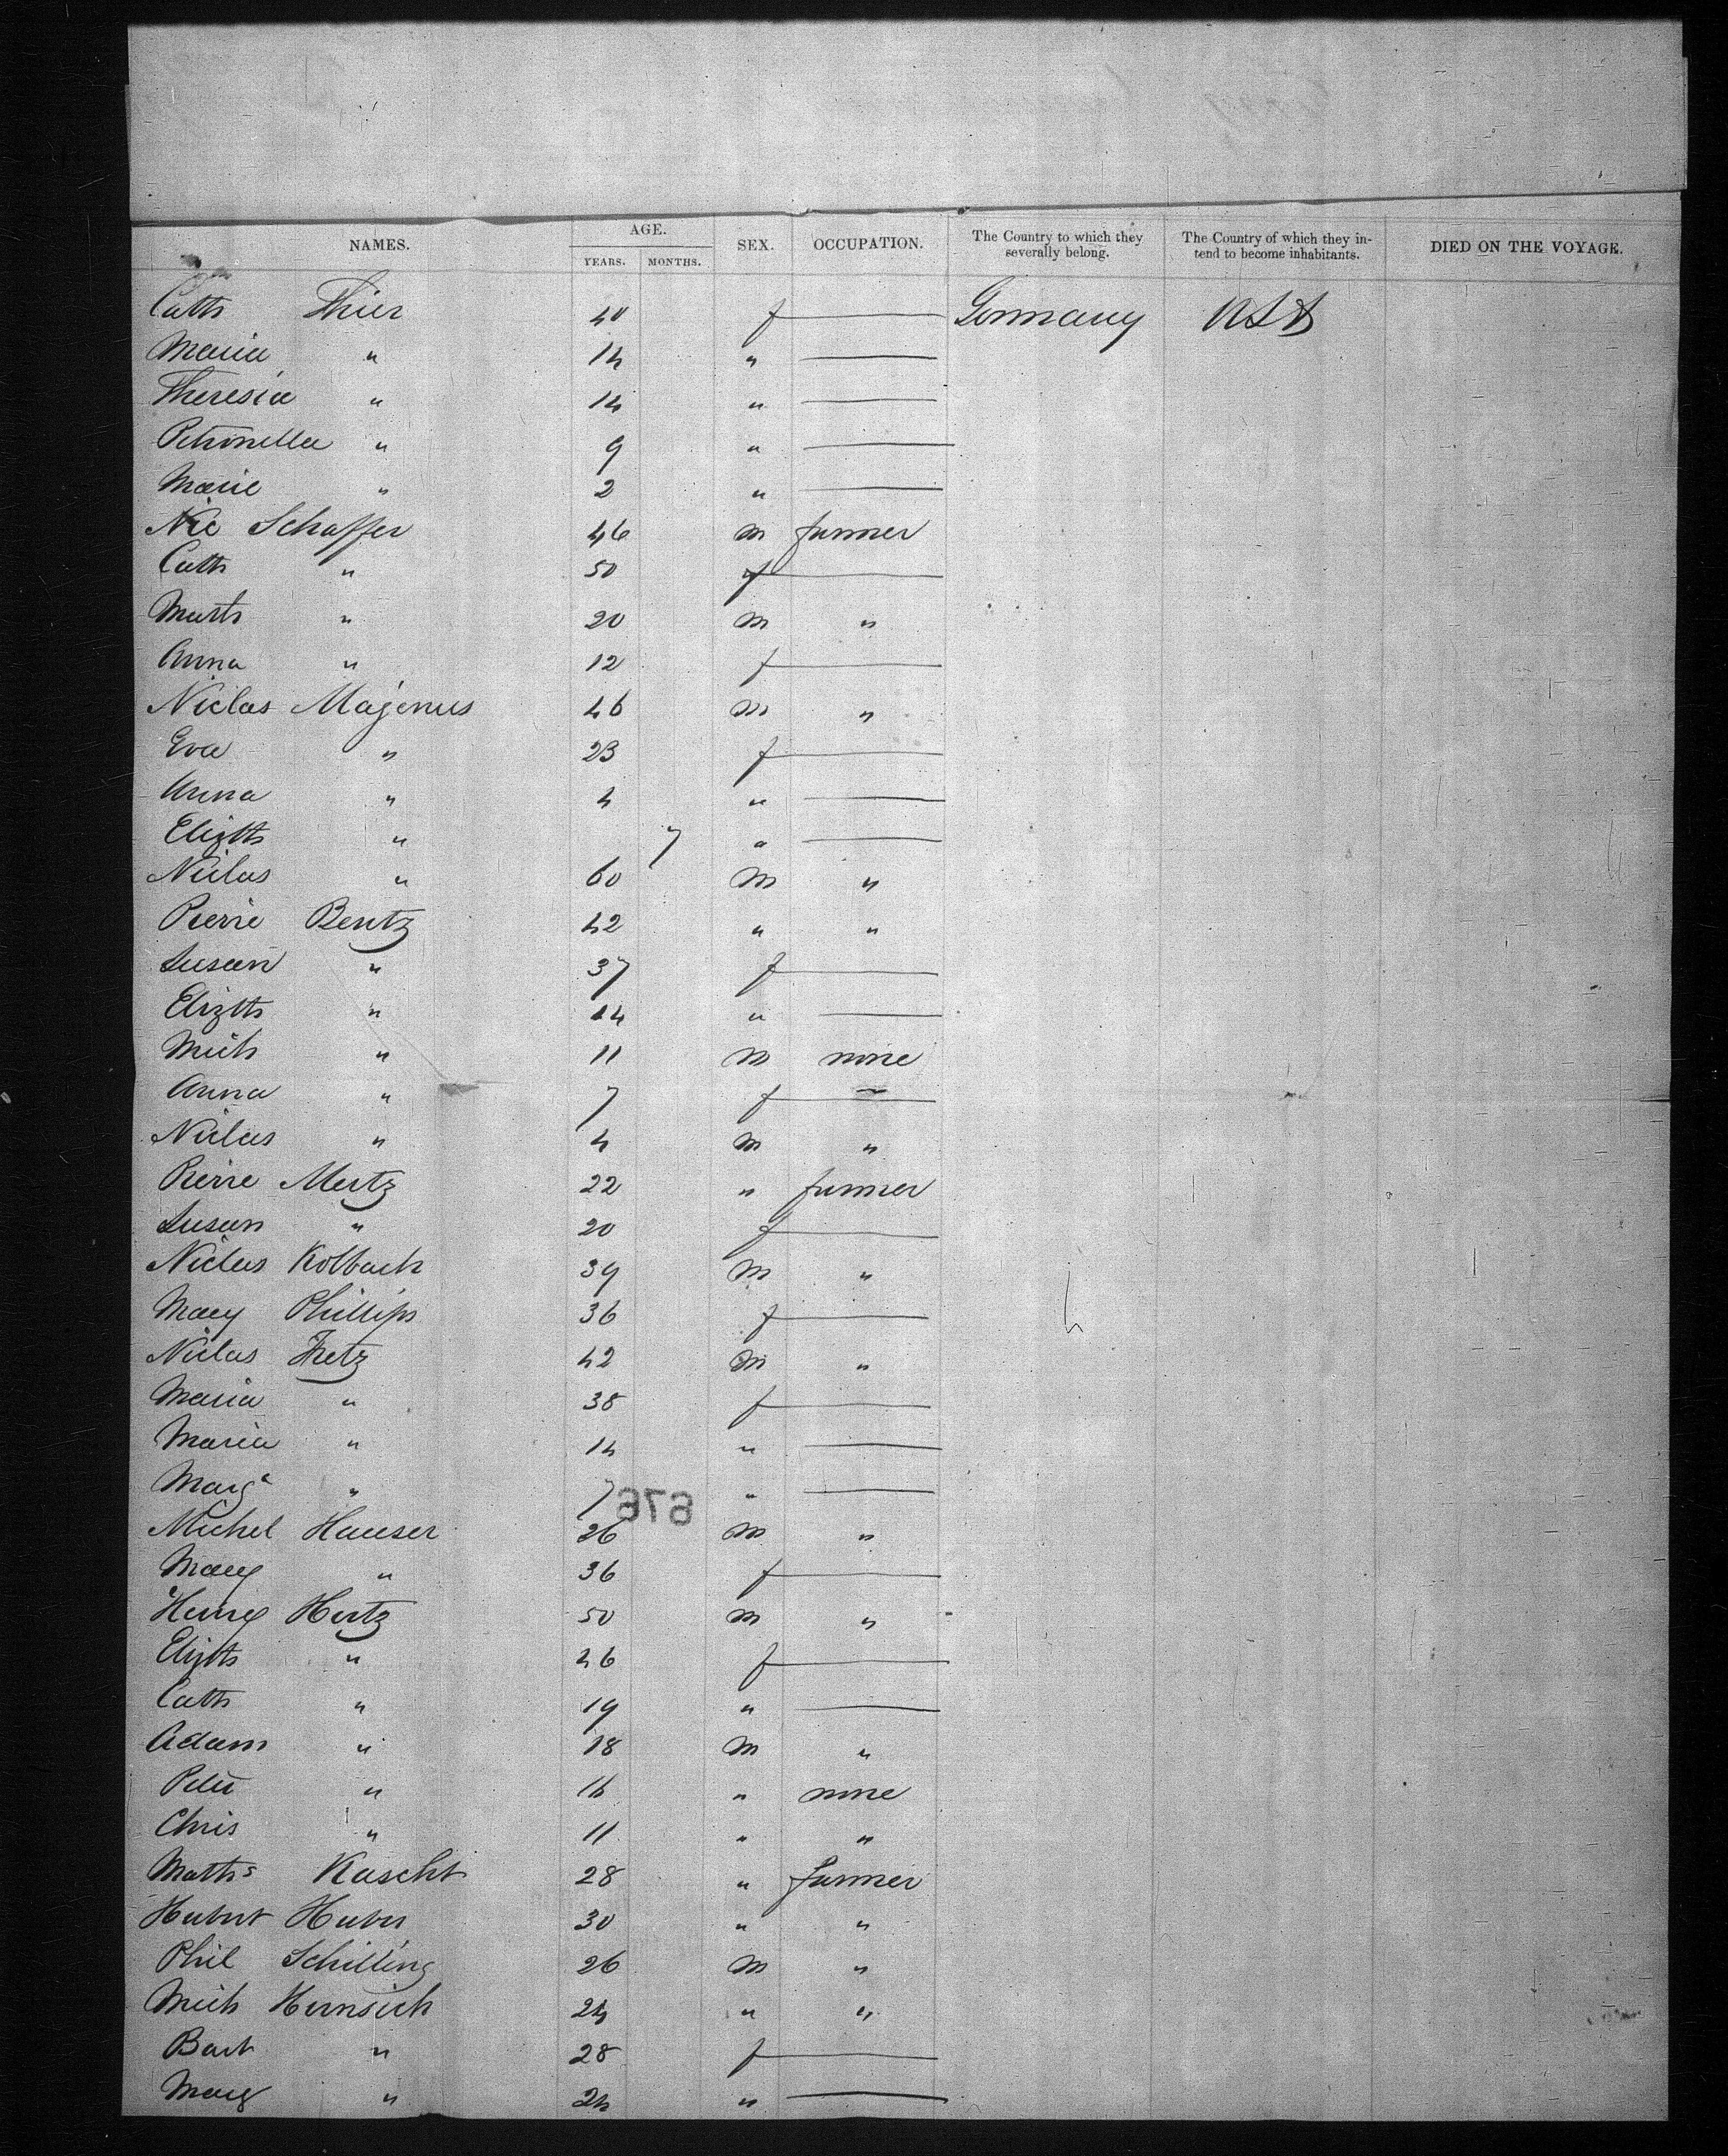 NAMES. AGE. SEX. OCCUPATION. The Country to which they severally belong. The Country of which they intend to become inhabitants. DIED ON THE VOYAGE.
YEARS. MONTHS.
Cath Thier 40 f — Germany USA
Maria " 14 " —
Theresia " 14 " —
Petronella " 9 " —
Marie " 2 " —
Nic Schaffer 46 m farmer
Cath " 50 f —
Math " 20 m "
Anna " 12 f —
Niclas Majerus 46 m "
Eva " 23 f —
Anna " 4 " —
Elizth " 7 " —
Niclas " 60 m "
Pierre Bentz 42 " "
Susan " 37 f —
Elizth " 14 " —
Mich " 11 m none
Anna " 7 f —
Niclas " 4 m "
Pierre Mertz 22 " farmer
Susan " 20 f —
Niclas Kolbach 39 m "
Mary Phillips 36 f —
Niclas 42 m "
Maria " 38 f —
Maria " 14 " —
Marg " 7 " —
676
Michel Hauser 26 m "
Mary " 36 f —
Henry Hertz 50 m "
Elizth " 46 f —
Cath " 19 " —
Adam " 18 m "
Peter " 16 " none
Chris " 11 " "
Maths Kascht 28 " farmer
Hubert Huber 30 " "
Phil Schilling 26 m "
Mich 24 " "
Barb " 28 f —
Marg " 24 " —